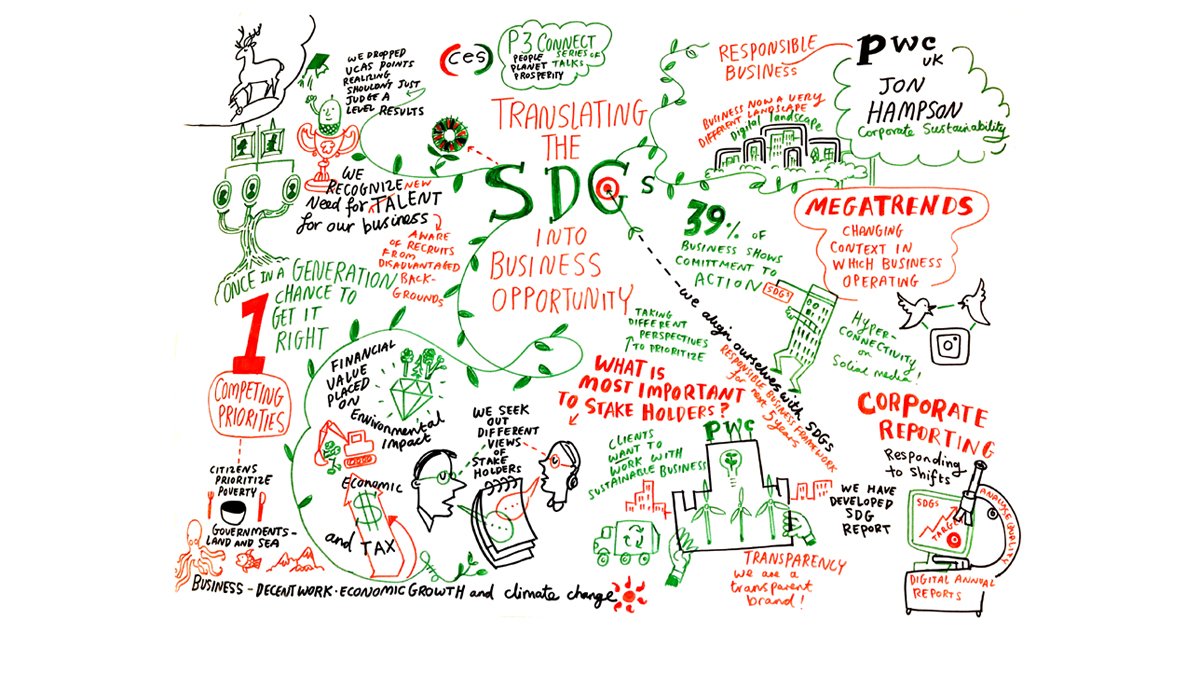 WE DROPPED
UCAS POINTS
REALIZING
SHOULDN'T JUST
JUDGE A
LEVEL RESULTS
ces
P3 CONNECT
PEOPLE SERIES OF
PLANET TALKS
PROSPERITY
RESPONSIBLE
BUSINESS
PWC
UK
JON
HAMPSON
Corporate Sustainability
BUSINESS NOW A VERY
DIFFERENT LANDSCAPE
Digital landscape
TRANSLATING
THE
SDGs
INTO
BUSINESS
OPPORTUNITY
WE
RECOGNIZE NEW
Need for TALENT
for our business
AWARE
OF RECRUITS
FROM
DISADVANTAGED
BACK-
GROUNDS
ONCE IN A GENERATION
CHANCE TO
GET IT
RIGHT
1
COMPETING
PRIORITIES
CITIZENS
PRIORITIZE
POVERTY
GOVERNMENTS-
LAND AND SEA
BUSINESS - DECENT WORK · ECONOMIC GROWTH and climate change
FINANCIAL
VALUE
PLACED
ON
Environmental
impact
ECONOMIC
$
and TAX
WE SEEK
OUT
DIFFERENT
VIEWS
OF
STAKE
HOLDERS
39% OF
BUSINESS SHOWS
COMITTMENT TO
ACTION
SDGs
MEGATRENDS
CHANGING
CONTEXT IN
WHICH BUSINESS
OPERATING
HYPER-
CONNECTIVITY
on
Social media!
TAKING
DIFFERENT
PERSPECTIVES
TO PRIORITIZE
-we align ourselves with SDGs
RESPONSIBLE BUSINESS FRAMEWORK
for next 5 years
WHAT IS
MOST IMPORTANT
TO STAKE HOLDERS?
CLIENTS
WANT TO
WORK WITH
SUSTAINABLE BUSINESS
PWC
TRANSPARENCY
we are a
transparent
brand!
CORPORATE
REPORTING
Responding
to Shifts
WE HAVE
DEVELOPED
SDG
REPORT
SDGs
TARGET
ANALYSE QUALITY
DIGITAL ANNUAL
REPORTS